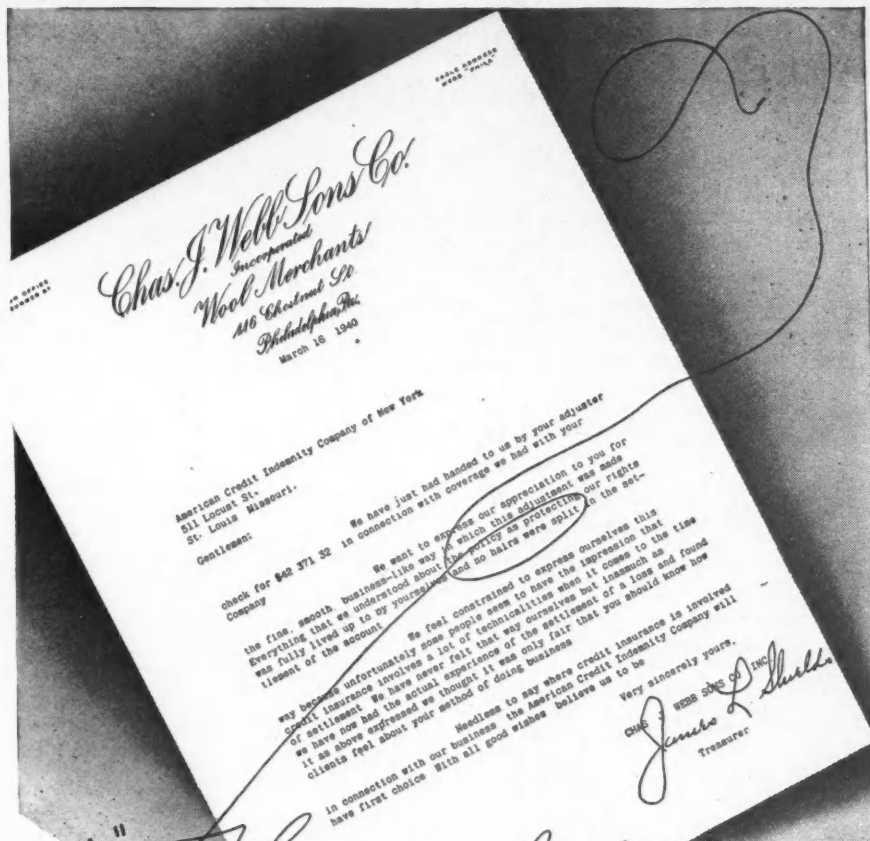 CABLE ADDRESS
WEBB "PHILA"
Chas. J. Webb Sons Co.
Incorporated
Wool Merchants
116 Chestnut St.
Philadelphia, Pa.
March 16 1940
American Credit Indemnity Company of New York
511 Locust St.
St. Louis Missouri.
Gentlemen:
We have just had handed to us by your adjuster
check for $42 371 32 in connection with coverage we had with your
Company
We want to express our appreciation to you for
the fine, smooth, business-like way in which this adjustment was made
Everything that we understood about the policy as protecting our rights
was fully lived up to by yourselves and no hairs were split in the set-
tlement of the account
We feel constrained to express ourselves this
way because unfortunately some people seem to have the impression that
credit insurance involves a lot of technicalities when it comes to the time
of settlement. We have never felt that way ourselves but inasmuch as
we have now had the actual experience of the settlement of a loss and found
it as above expressed we thought it was only fair that you should know how
clients feel about your method of doing business
Needless to say where credit insurance is involved
in connection with our business the American Credit Indemnity Company will
have first choice With all good wishes believe us to be
Very sincerely yours,
CHAS J WEBB SONS CO INC
James L Shields
Treasurer